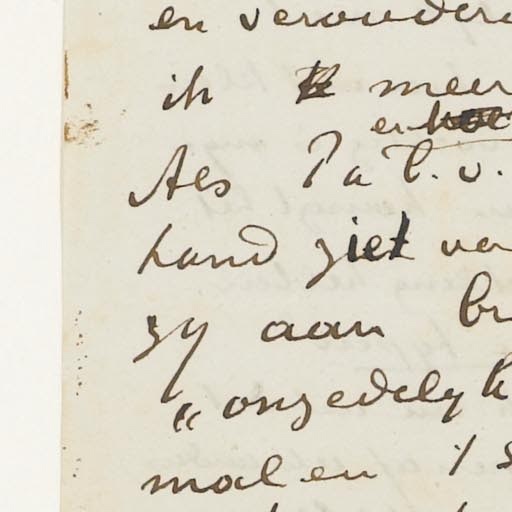 en verouder
ih meer
er
Als Pa b.v.
hand ziet va
zy aan br
"onzedelyk
malen 's